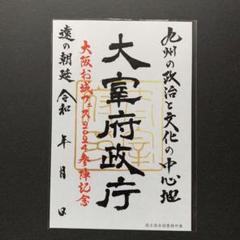 九州の政治と文化の中心地
大宰府政庁
大阪お城フェス2024参陣記念
遠の朝廷 令和 年 月 日